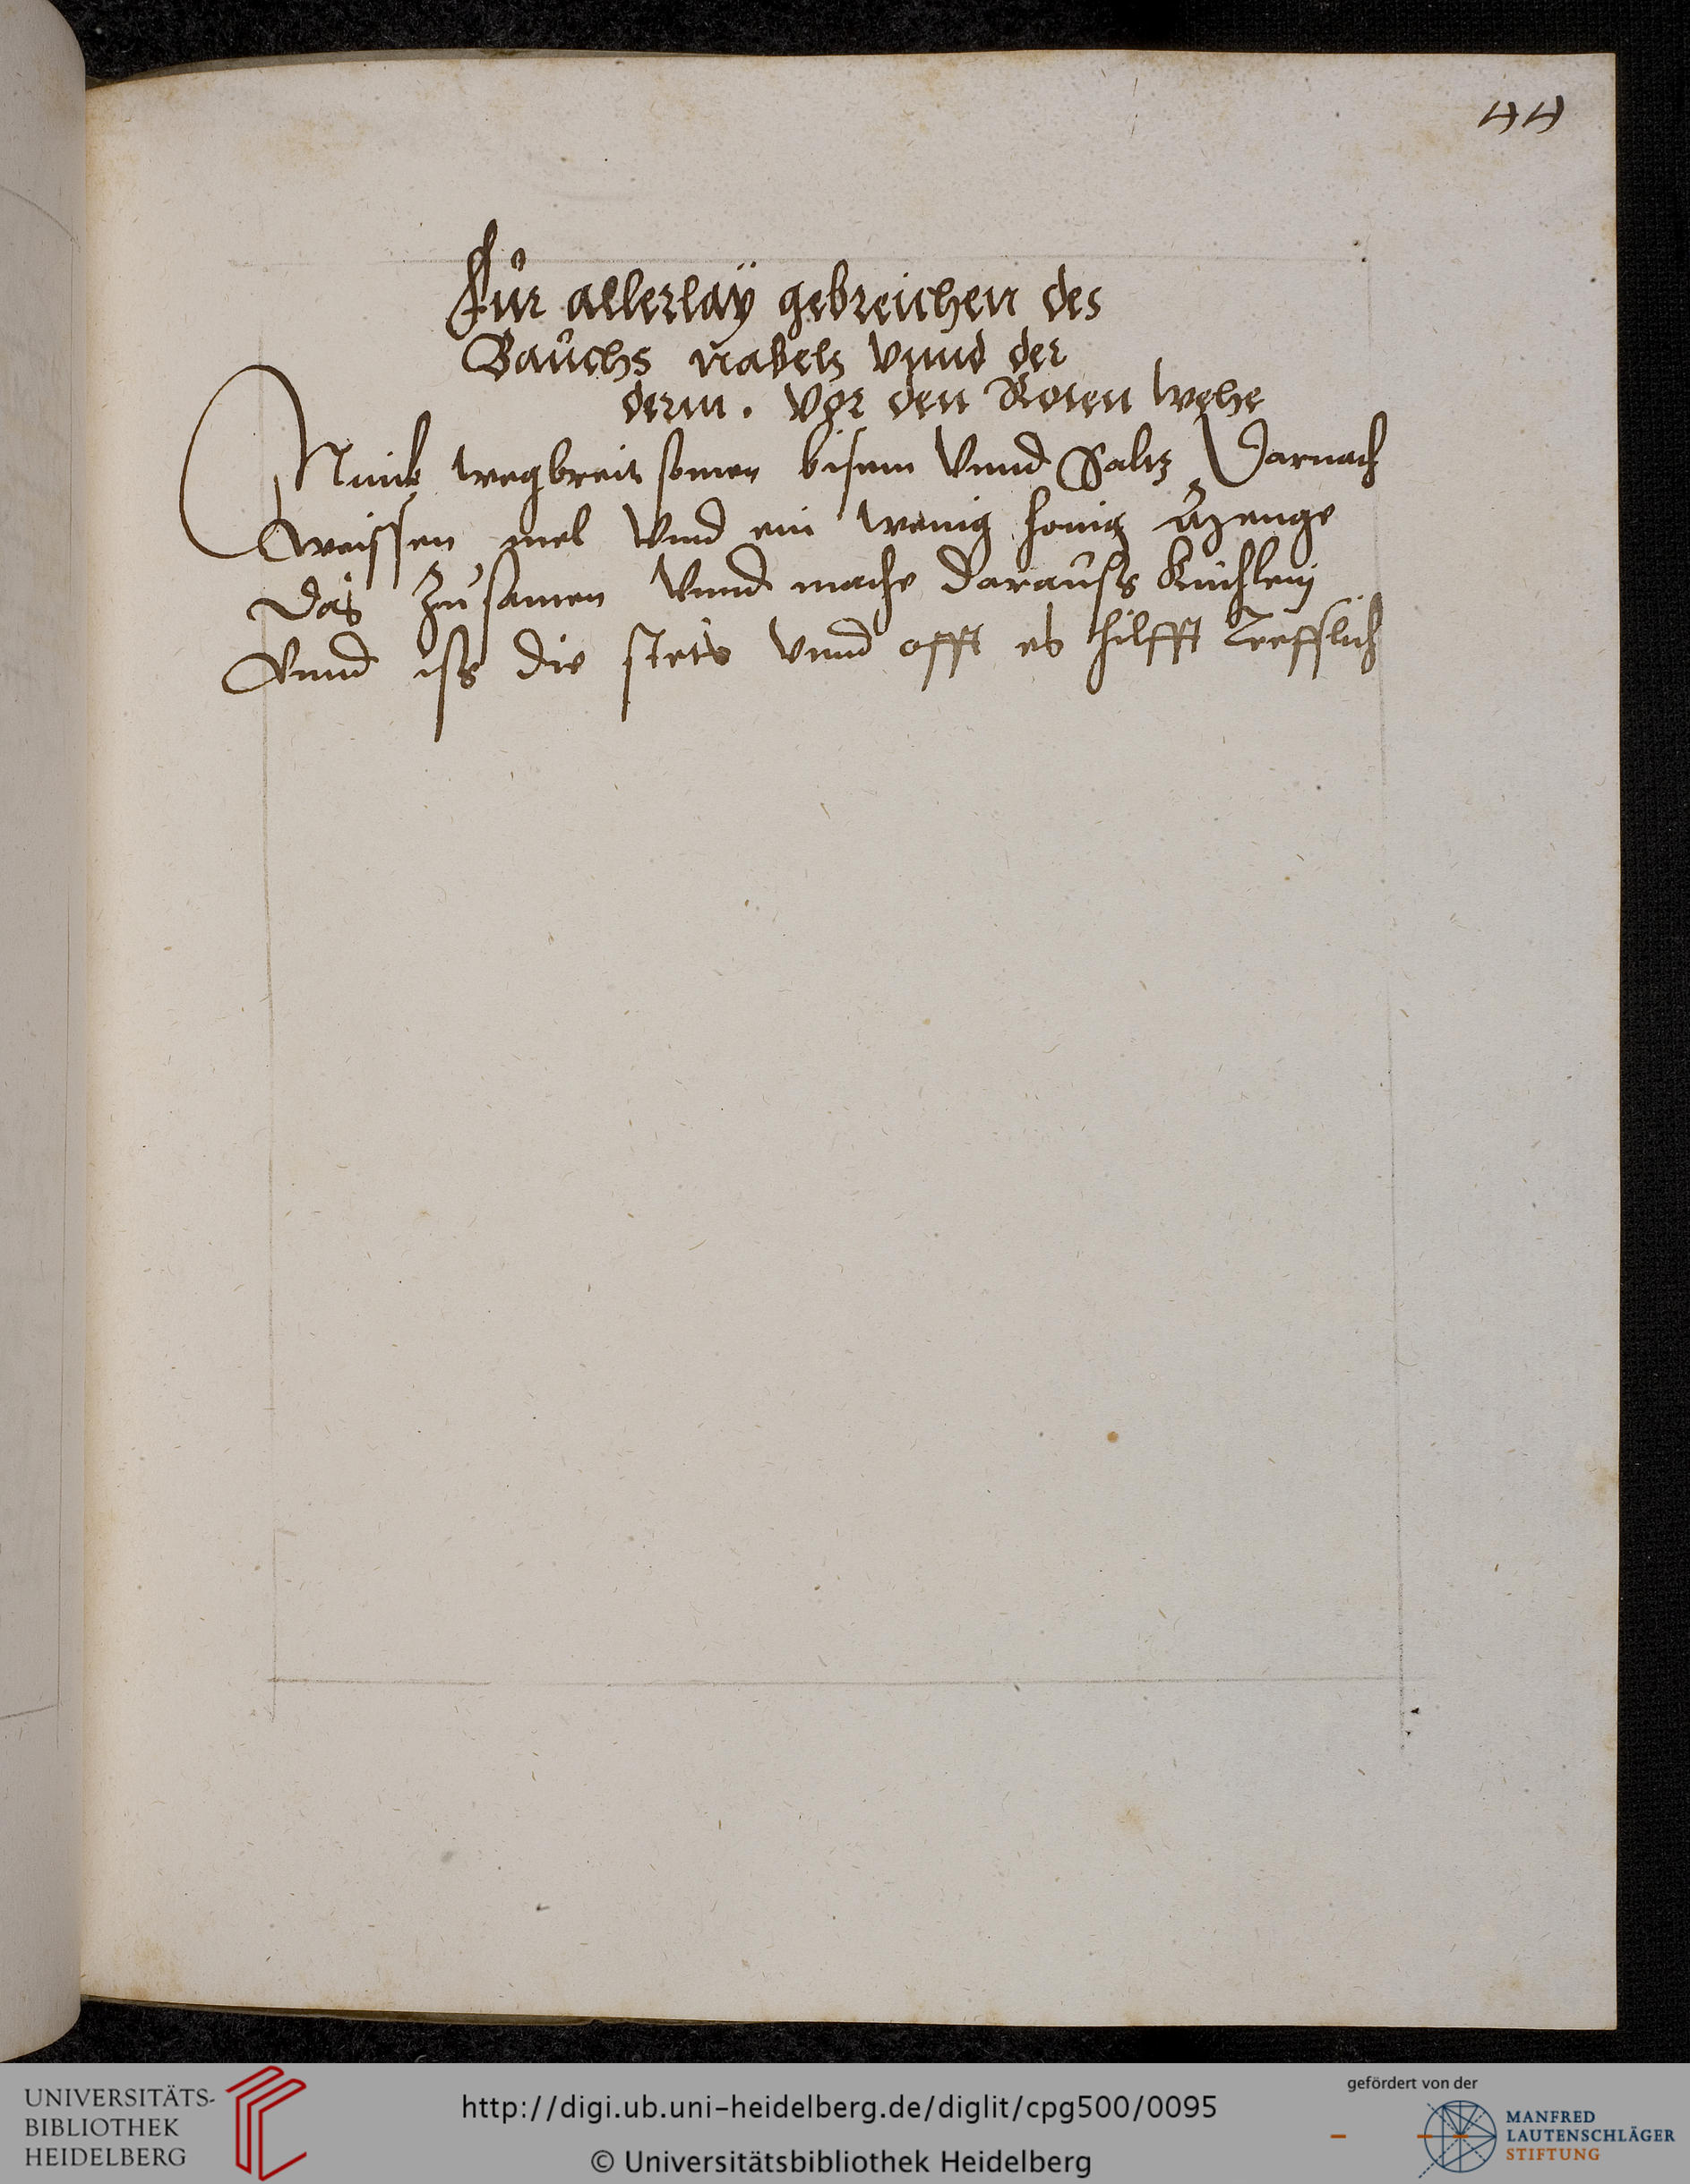 44
Für allerlaÿ gebreichen des
Bauchs nabels vnnd der
derm. Vor den Roten wehe
Nimb wegbreit somen bisem Vnnd Saltz Darnach
weissen mel Vnd ein wenig honig Menge
das Zusamen Vnnd mache darauss Kuchlein
Vnnd iss die stets vnnd offt es hilfft Trefflich
UNIVERSITÄTS-
BIBLIOTHEK
HEIDELBERG
http://digi.ub.uni-heidelberg.de/diglit/cpg500/0095
© Universitätsbibliothek Heidelberg
gefördert von der
MANFRED
LAUTENSCHLÄGER
STIFTUNG